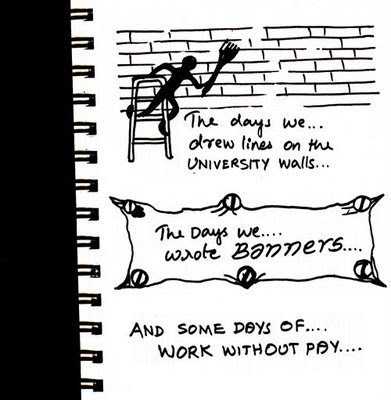 The days we...
drew lines on the
UNIVERSITY walls...
The Days we....
wrote BANNERS....
AND SOME DAYS OF....
WORK WITHOUT PAY....